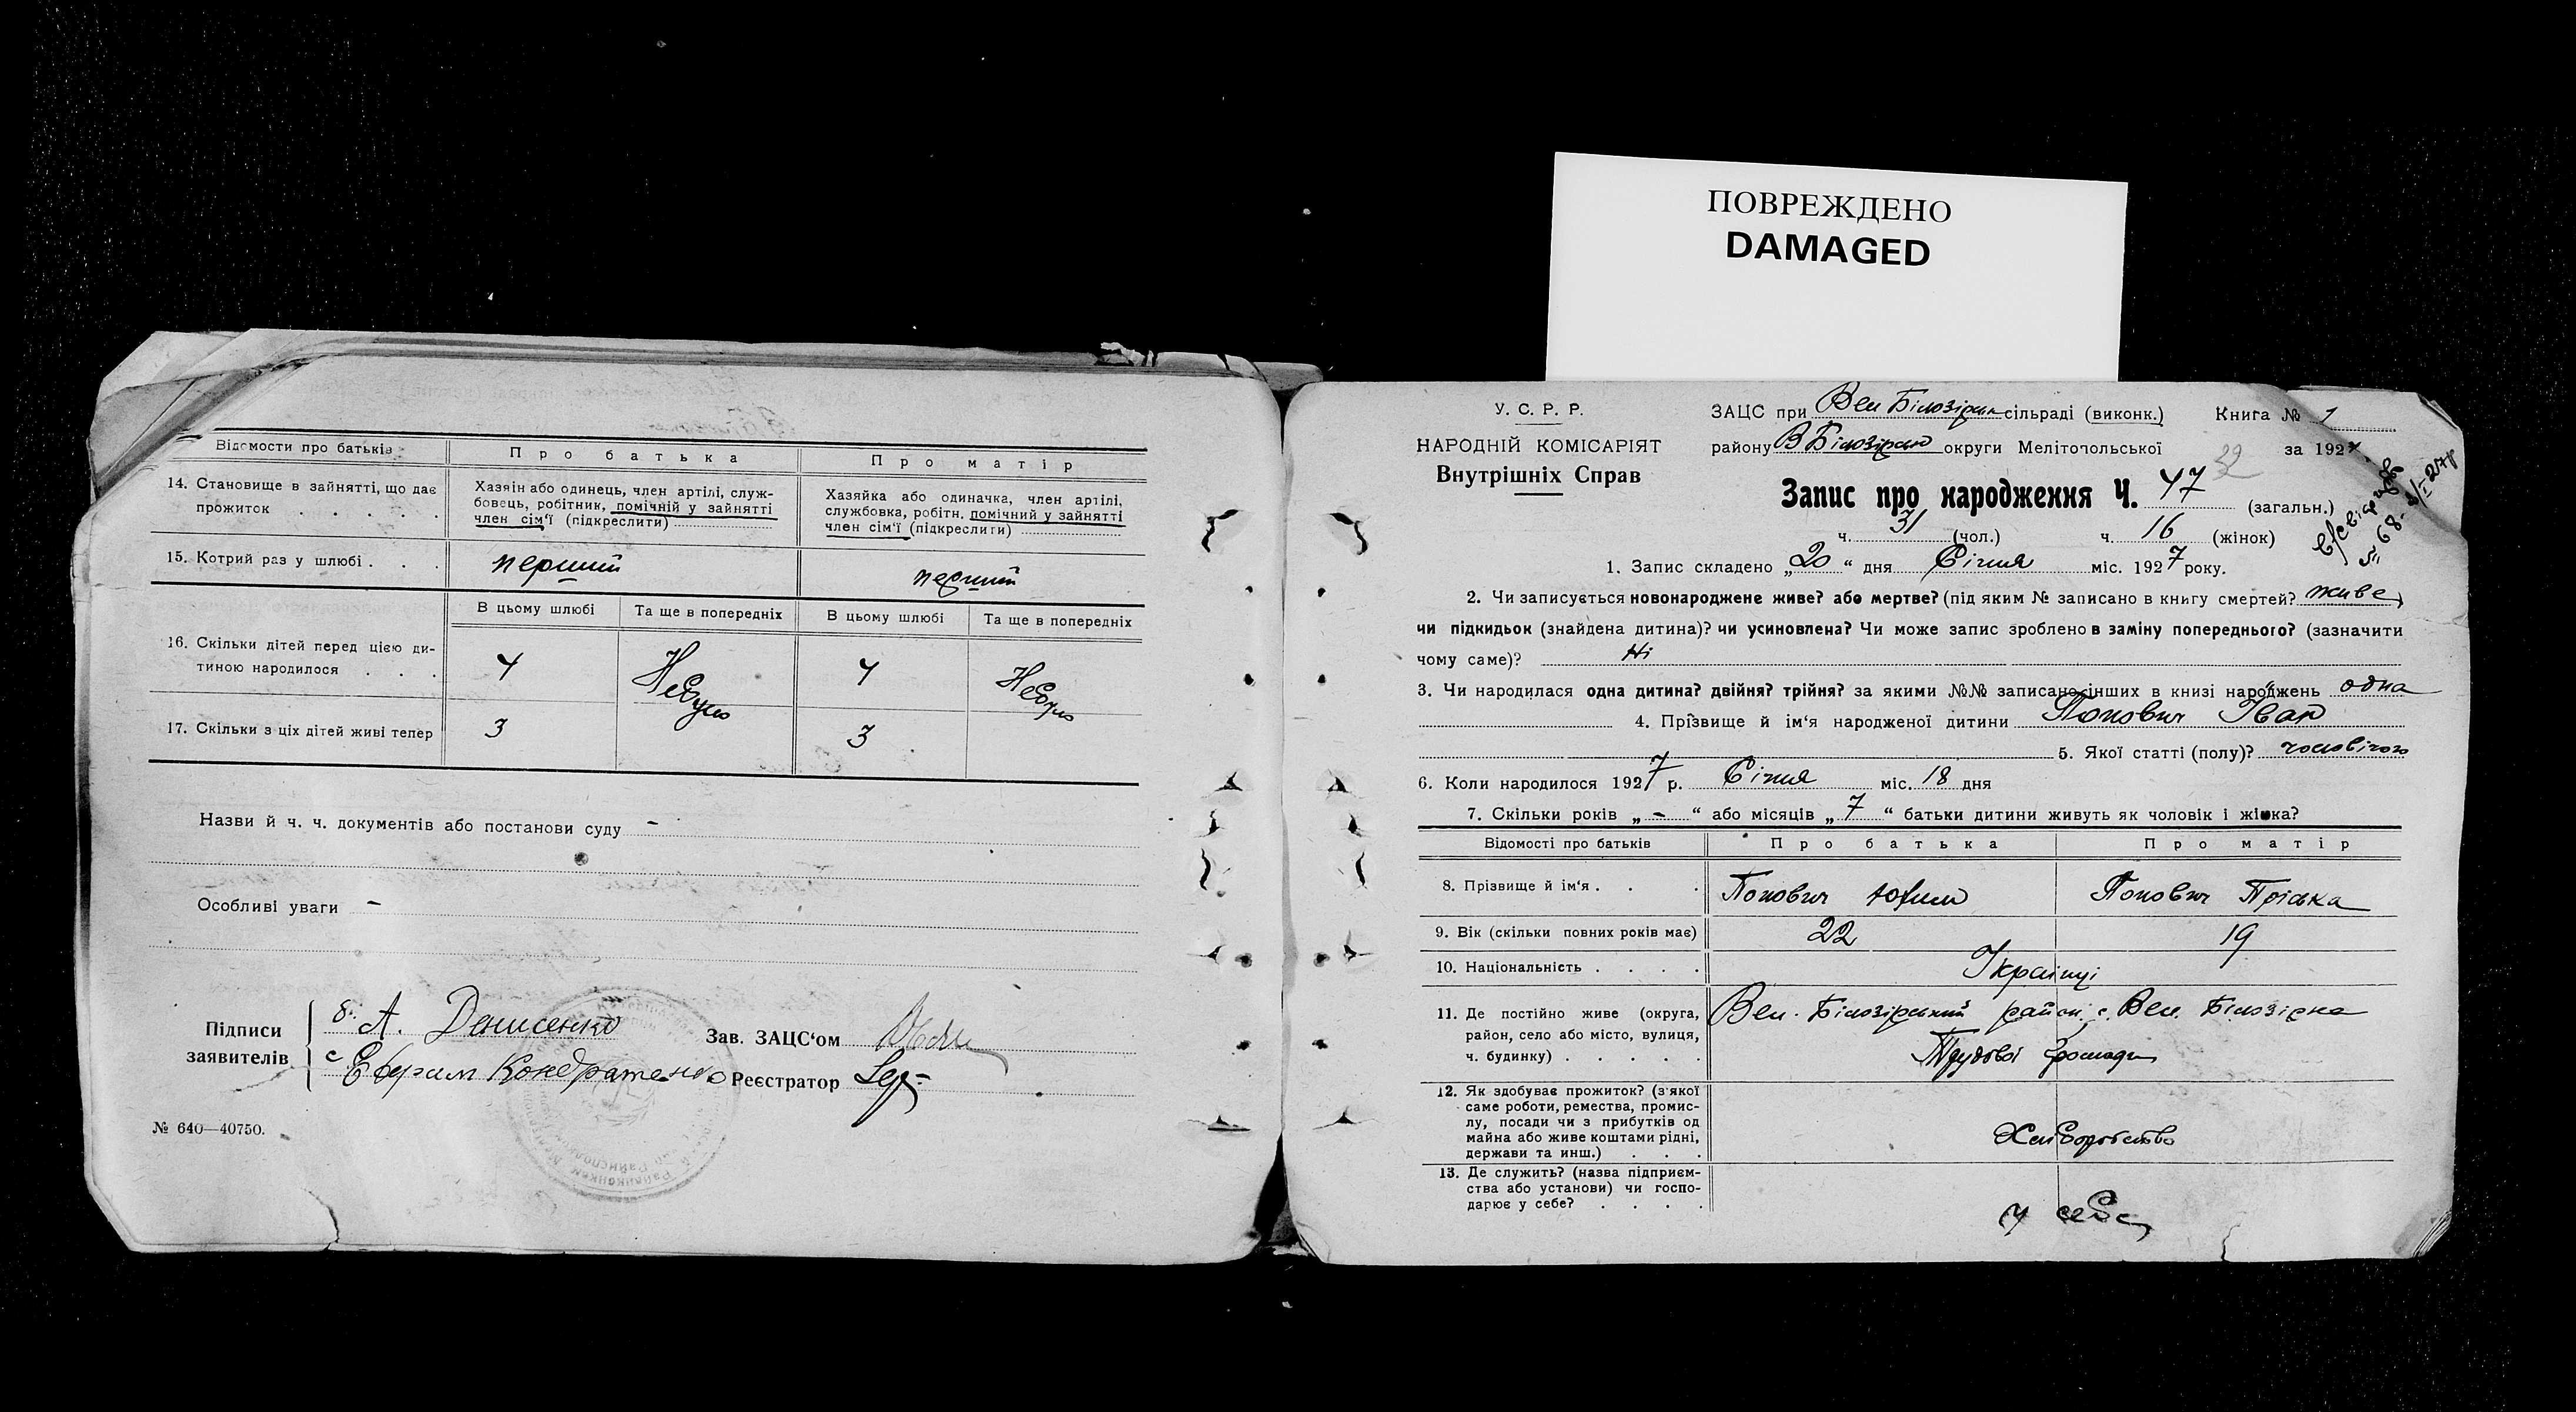 ПОВРЕЖДЕНО
DAMAGED
Відомости про батьків
Про батька
Про матір
14. Становище в зайнятті, що дає
прожиток . . . . .
Хазяін або одинець, член артілі, служ-
бовець, робітник, помічній у зайнятті
член сім'ї (підкреслити)
Хазяйка або одиначка, член артілі,
службовка, робітн. помічний у зайнятті
член сім'ї (підкреслити)
15. Котрий раз у шлюбі . . .
перший
перший
В цьому шлюбі
Та ще в попередніх
В цьому шлюбі
Та ще в попередніх
16. Скільки дітей перед цією ди-
тиною народилося . . .
4
Небуло
4
Небуло
17. Скільки з ціх дітей живі тепер
3
3
Назви й ч. ч. документів або постанови суду —
Особливі уваги —
Підписи
заявителів
А. Денисенко
Кондратенко
Зав. ЗАЦС'ом
Реєстратор
№ 640—40750.
У. С. Р. Р.
НАРОДНІЙ КОМІСАРІЯТ
Внутрішніх Справ
ЗАЦС при Вел Білозірск сільраді (виконк.)
Книга № 1
району В Білозірск округи Мелітопольської
за 1927
32
Запис про народження Ч. 47 (загальн.)
ч. 31 (чол.) ч. 16 (жінок)
1. Запис складено „20“ дня Січня міс. 1927 року.
2. Чи записується новонароджене живе? або мертве? (під яким № записано в книгу смертей? живе)
чи підкидьок (знайдена дитина)? чи усиновлена? Чи може запис зроблено в заміну попереднього? (зазначити
чому саме)? Ні
3. Чи народилася одна дитина? двійня? трійня? за якими №№ записано інших в книзі народжень одна
4. Прізвище й ім'я народженої дитини Попович Іван
5. Якої статті (полу)? чоловічого
6. Коли народилося 1927 р. Січня міс. 18 дня
7. Скільки років „—“ або місяців „7“ батьки дитини живуть як чоловік і жінка?
Відомості про батьків
Про батька
Про матір
8. Прізвище й ім'я . . .
Попович Юхим
Попович Пріська
9. Вік (скільки повних років має)
22
19
10. Національність . . . .
Українці
11. Де постійно живе (округа,
район, село або місто, вулиця,
ч. будинку) . . . . .
Вел. Білозірський район с. Вел. Білозірка
Трудової громади
12. Як здобуває прожиток? (з якої
саме роботи, ремества, промис-
лу, посади чи з прибутків од
майна або живе коштами рідні,
держави та инш.) . . .
Хліборобство
13. Де служить? (назва підприєм-
ства або установи) чи госпо-
дарює у себе? . . . .
у себе